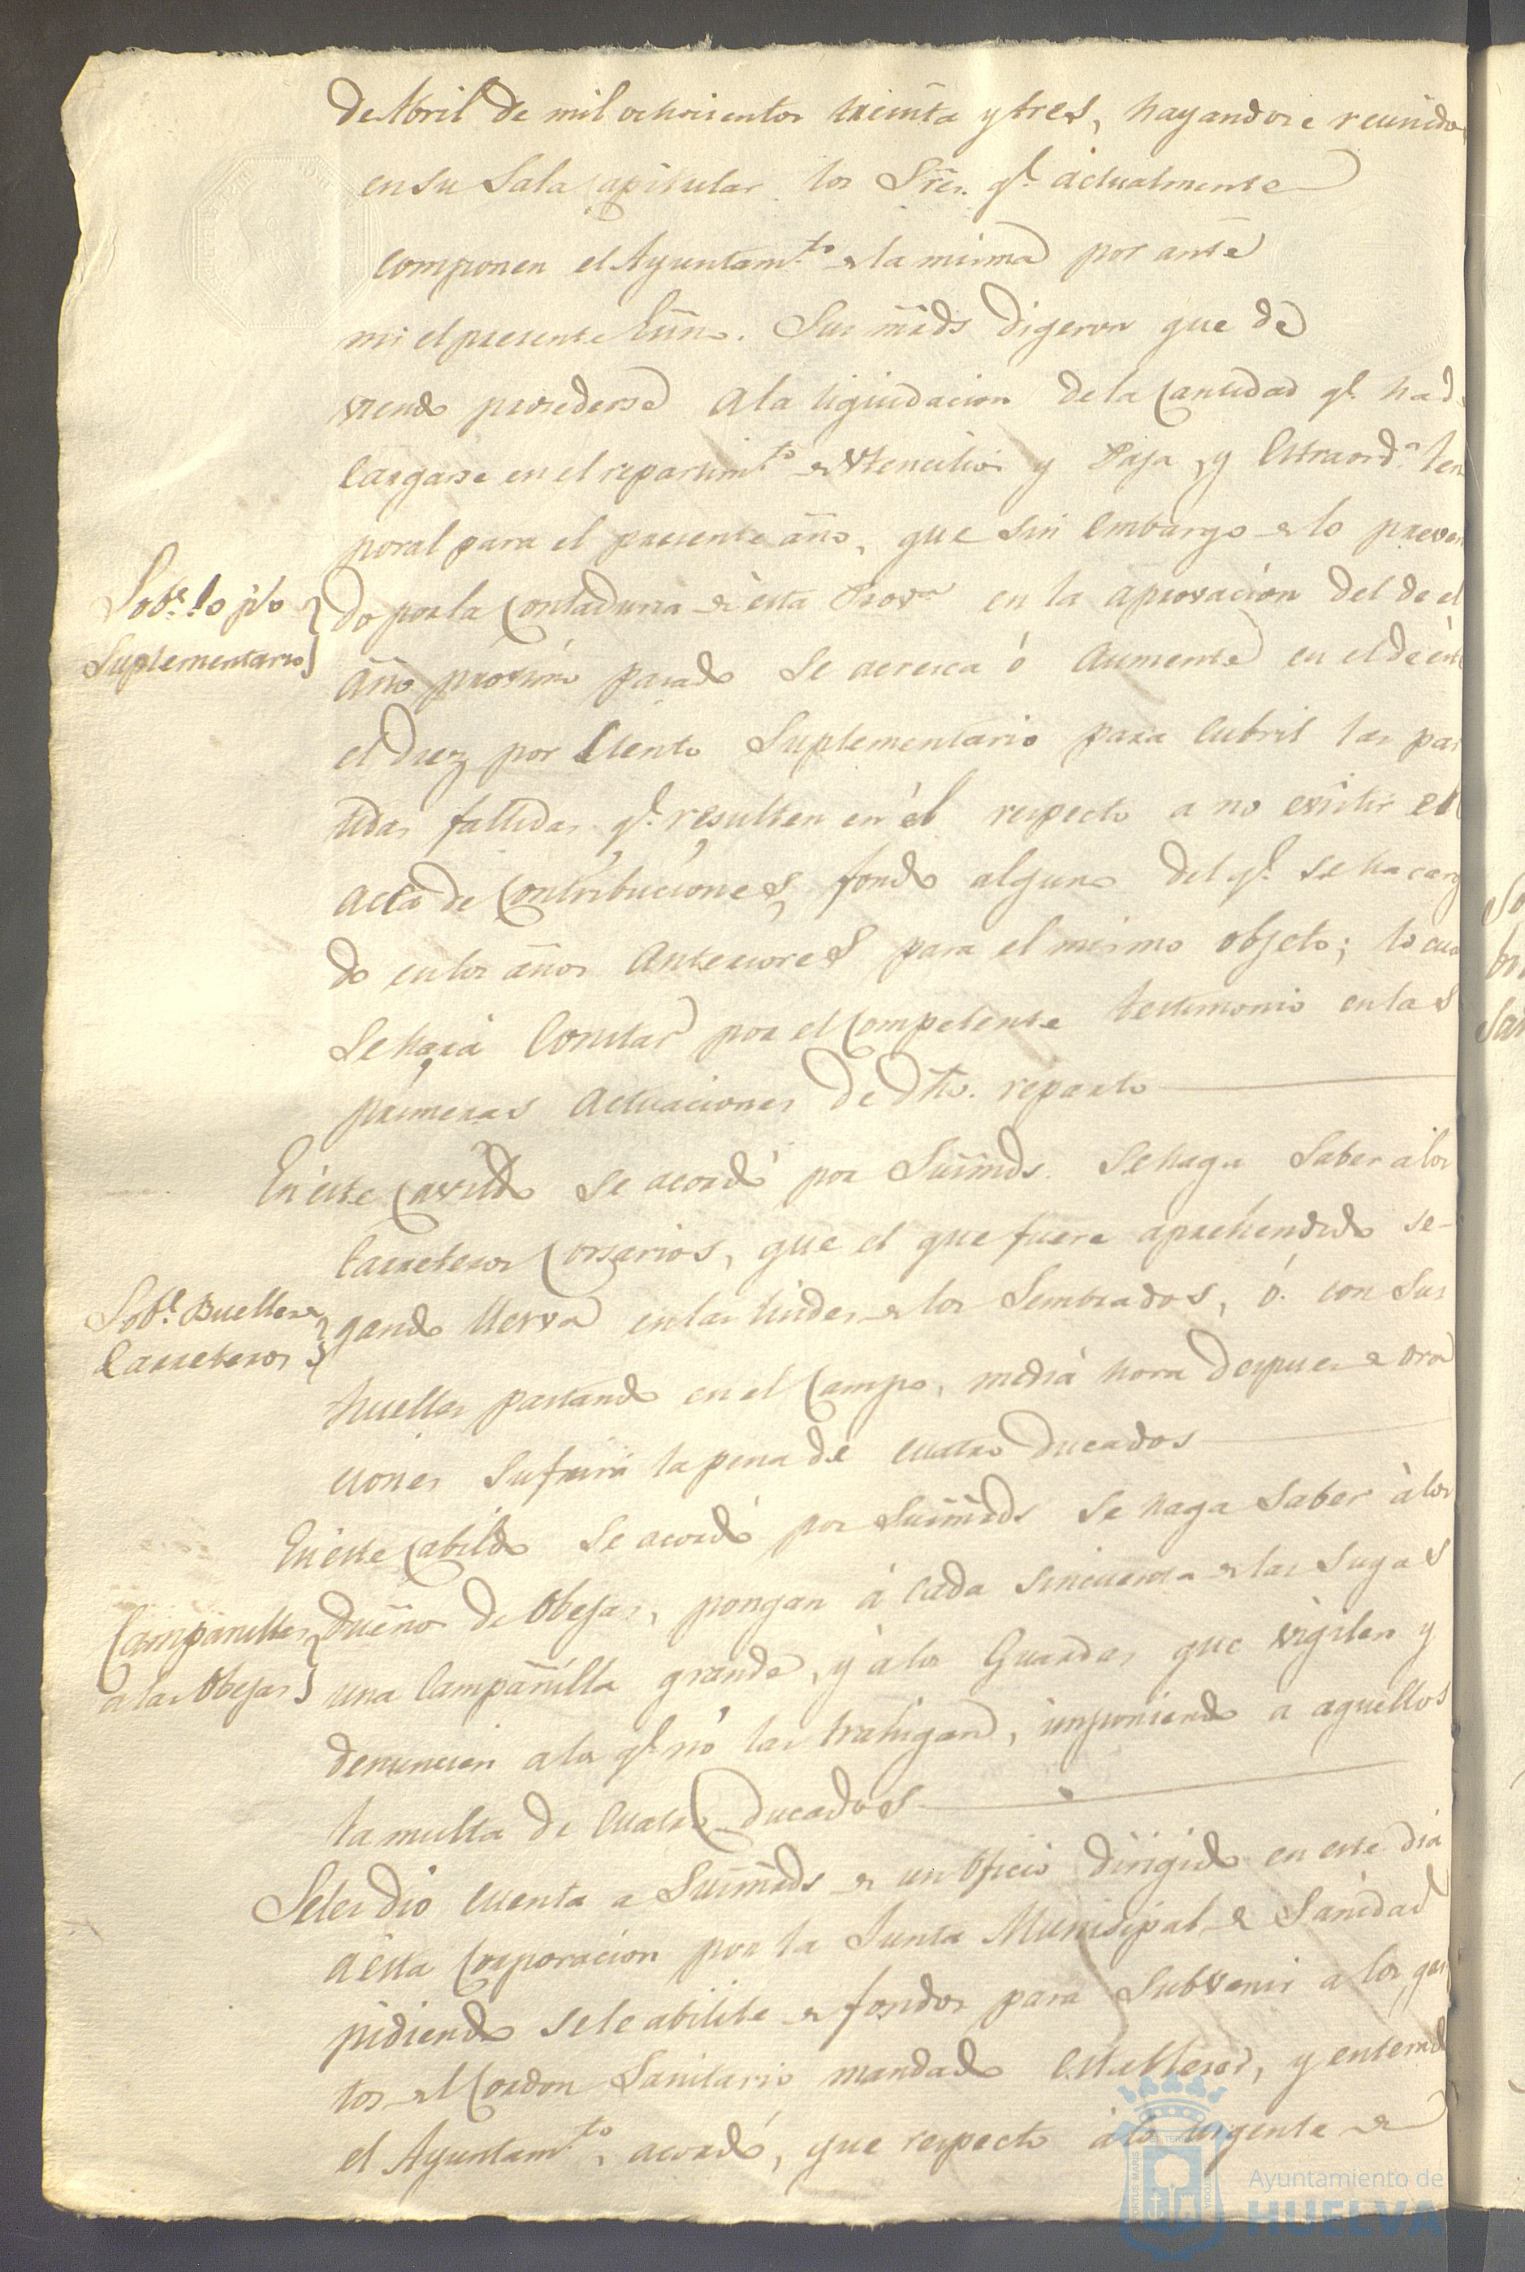 de Abril de mil ochosientos treinta y tres, hayandose reunidos
en su Sala Capitular los Sres. q.e actualmente
componen el Ayuntam.to de la misma por ante
mi el presente Essno. Sus mrds digeron que de
viendo procederse a la liquidacion de la Cantidad q.e had
Cargarse en el repartim.to de Utencilios y Paja, y Estraord.o tem
poral para el presente año, que sin embargo de lo preven
Sob.e lo p%
Suplementario
do por la Contaduria de esta Prov.a en la aprovacion del de el
año proximo pasado se acresca ó aumente en el de este
el diez por Ciento Suplementario para Cubril las par
tidas fallidas q.e resulten en él respecto a no existir en
acta de Contribuciones fondo alguno del q.e se ha carga
do en los años anteriores para el mismo objeto; lo cual
se hará Constar por el Competente testimonio en las
primeras actuaciones de dho. reparto
En este Cavildo se acordó por Sus mrds. se haga saber á los
Carreteros Cosarios, que el que fuere aprehendido se-
Sob.e Bueltes
Carreteros
gando Yerva en las lindes de los Sembrados, ó con sus
huelles pastando en el Campo, media hora despues de ora
ciones sufrirá la pena de cuatro ducados
En este Cabildo se acordó por Sus mrds se haga saber á los
Campanillas
a las Obejas
dueños de Obejas, pongan á cada sincuenta de las sugas
una Campañilla grande, y á los Guardas que vigilen y
denuncien a los q.e no las trahigan, imponiendo a aquellos
la multa de Cuatro ducados
Se les dió cuenta a Sus mrds de un Oficio dirigido en este dia
a esta Corporacion por la Junta Munisipal de Sanidad
pidiendo se le abilite de fondos para Subvenir a los gas
tos del Cordon Sanitario mandado Establecer, y enterado
el Ayuntam.to, acordó, que respecto á lo urgente de
Ayuntamiento de
HUELVA